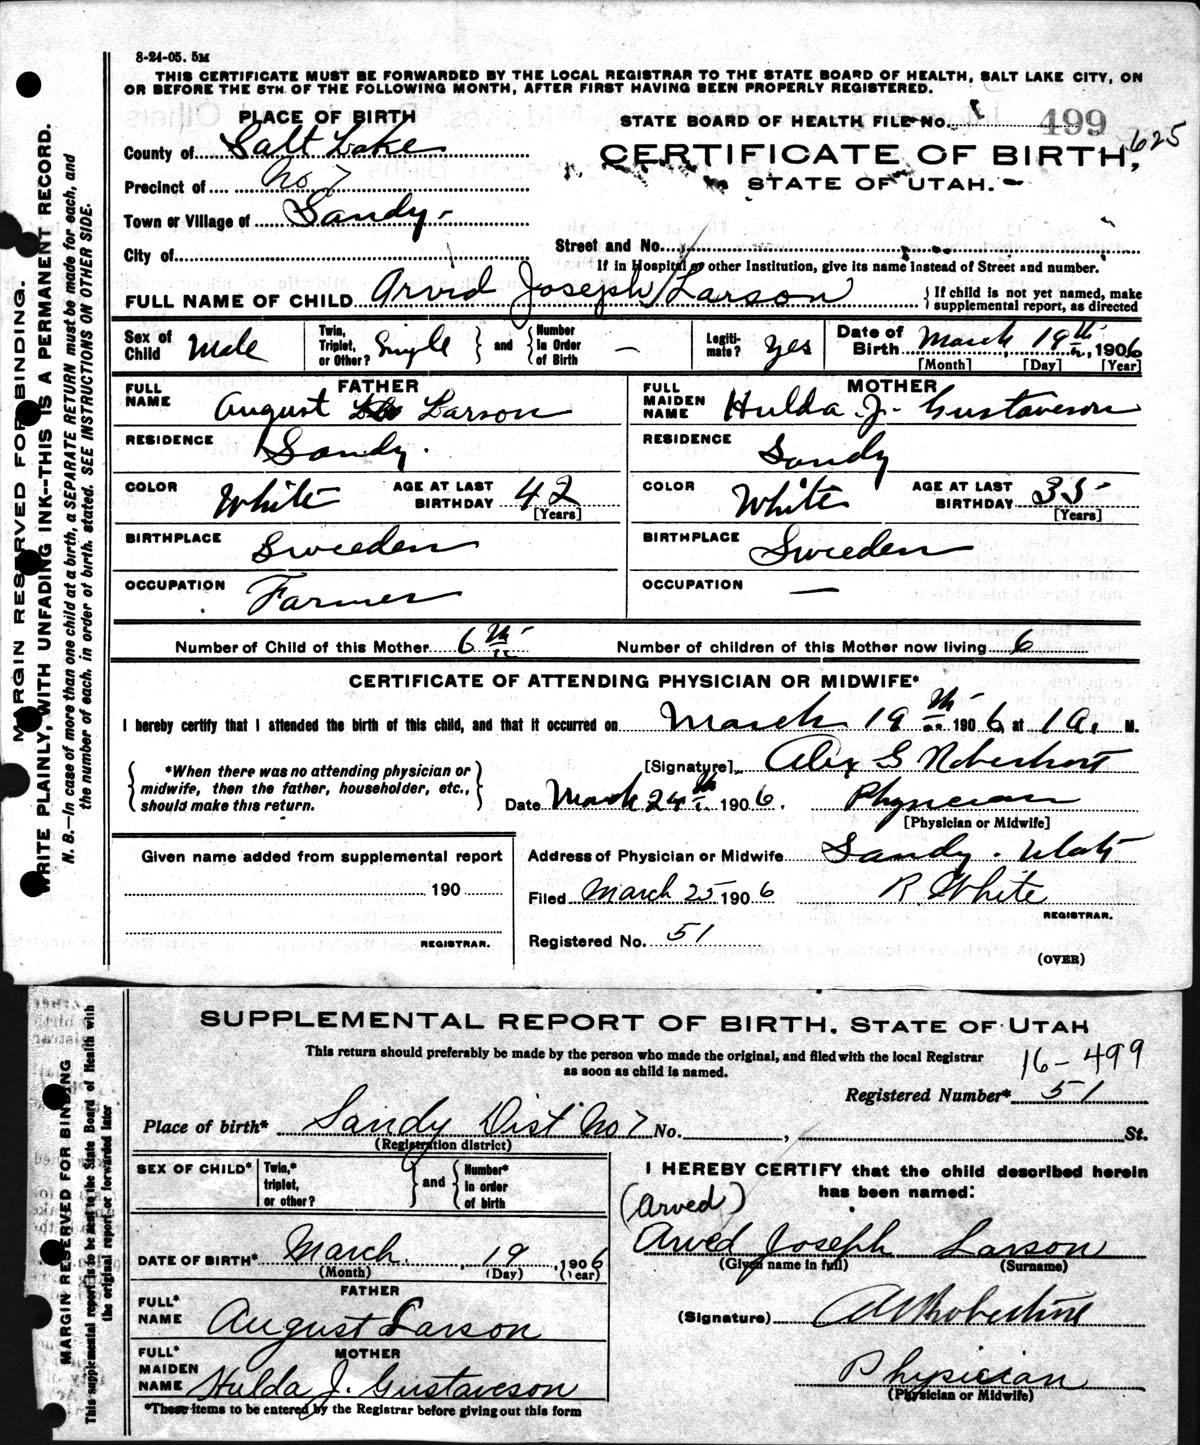 8-24-05. 5M
THIS CERTIFICATE MUST BE FORWARDED BY THE LOCAL REGISTRAR TO THE STATE BOARD OF HEALTH, SALT LAKE CITY, ON
OR BEFORE THE 5TH OF THE FOLLOWING MONTH, AFTER FIRST HAVING BEEN PROPERLY REGISTERED.
MARGIN RESERVED FOR BINDING.
WRITE PLAINLY, WITH UNFADING INK--THIS IS A PERMANENT RECORD.
N. B.—In case of more than one child at a birth, a SEPARATE RETURN must be made for each, and
the number of each, in order of birth, stated. SEE INSTRUCTIONS ON OTHER SIDE.
PLACE OF BIRTH
STATE BOARD OF HEALTH FILE No. 499
625
County of Salt Lake
CERTIFICATE OF BIRTH,
Precinct of No 7
STATE OF UTAH.
Town or Village of Sandy
Street and No.
City of
If in Hospital or other Institution, give its name instead of Street and number.
FULL NAME OF CHILD Arvid Joseph Larson { If child is not yet named, make
supplemental report, as directed
Sex of Child Male
Twin, Triplet, or Other? Single } and { Number in Order of Birth —
Legiti-mate? Yes
Date of Birth March 19th, 1906
[Month] [Day] [Year]
FATHER
FULL NAME August Larson
RESIDENCE Sandy.
COLOR White AGE AT LAST BIRTHDAY 42
[Years]
BIRTHPLACE Sweeden
OCCUPATION Farmer
MOTHER
FULL MAIDEN NAME Hulda J. Gustaveson
RESIDENCE Sandy
COLOR White AGE AT LAST BIRTHDAY 35
[Years]
BIRTHPLACE Sweeden
OCCUPATION —
Number of Child of this Mother 6th Number of children of this Mother now living 6
CERTIFICATE OF ATTENDING PHYSICIAN OR MIDWIFE*
I hereby certify that I attended the birth of this child, and that it occurred on March 19th 1906, at 1 a. M.
{ *When there was no attending physician or
midwife, then the father, householder, etc.,
should make this return. }
[Signature]
Date March 24th 1906. Physician
[Physician or Midwife]
Given name added from supplemental report
190
REGISTRAR.
Address of Physician or Midwife Sandy. Utah
Filed March 25 1906 R. White
REGISTRAR.
Registered No. 51
(OVER)
SUPPLEMENTAL REPORT OF BIRTH, STATE OF UTAH
This return should preferably be made by the person who made the original, and filed with the local Registrar
as soon as child is named.
16-499
MARGIN RESERVED FOR BINDING
This supplemental report is to be sent to the State Board of Health with
the original report or forwarded later
Registered Number* 51
Place of birth* Sandy Dist No 7 No. , St.
(Registration district)
SEX OF CHILD* Twin,* triplet, or other? } and { Number* in order of birth
DATE OF BIRTH* March. , 19 , 1906
(Month) (Day) (Year)
FATHER
FULL* NAME August Larson
MOTHER
FULL* MAIDEN NAME Hulda J. Gustaveson
*These items to be entered by the Registrar before giving out this form
I HEREBY CERTIFY that the child described herein
has been named:
(Arved)
Arved Joseph Larson
(Given name in full) (Surname)
(Signature)
Physician
(Physician or Midwife)